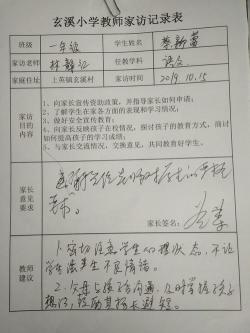 玄溪小学教师家访记录表
班级 一年级 学生姓名
家访老师 林 任教学科 语文
家庭住址 上英镇玄溪村 家访时间 2019.10.15
家访目的内容
1、向家长宣传资助政策,并指导家长如何申请;
2、了解学生在家各方面的表现和学习情况;
3、做好安全宣传教育;
4、向家长反映孩子在校情况,探讨孩子的教育方式,商讨如何提高孩子的学习成绩;
5、与家长交流情况,交换意见,共同教育好学生。
家长意见要求
感谢
家长签名:
教师建议
1、密切注意学生心理状态,不让
学生产生不良情绪。
2、父母与孩子沟通,及时掌握孩子
想法,鼓励其扬长避短。